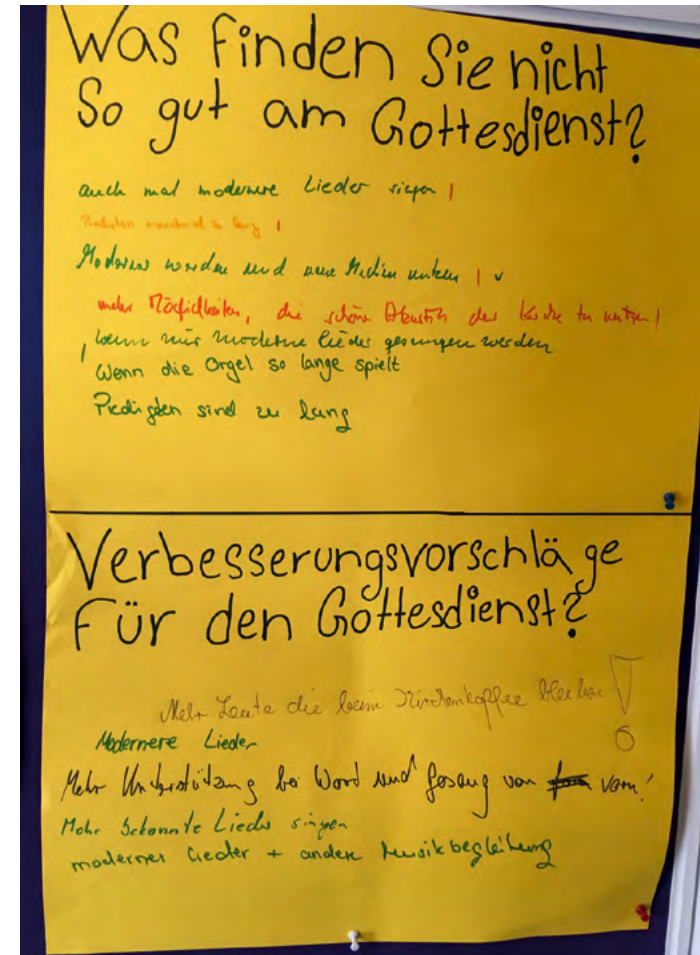 Was finden Sie nicht
so gut am Gottesdienst?
auch mal modernere Lieder singen |
Predigten manchmal zu lang |
Moderner werden und neue Medien nutzen | v
mehr Möglichkeiten, die schöne Akustik der Kirche zu nutzen |
| wenn nur moderne Lieder gesungen werden
Wenn die Orgel so lange spielt
Predigten sind zu lang
Verbesserungsvorschläge
Für den Gottesdienst?
Mehr Leute die beim Kirchenkaffee bleiben!
Modernere Lieder
Mehr Unterstützung bei Word und Gesang von vorn!
Mehr bekannte Lieder singen
moderner Lieder + andere Musikbegleitung